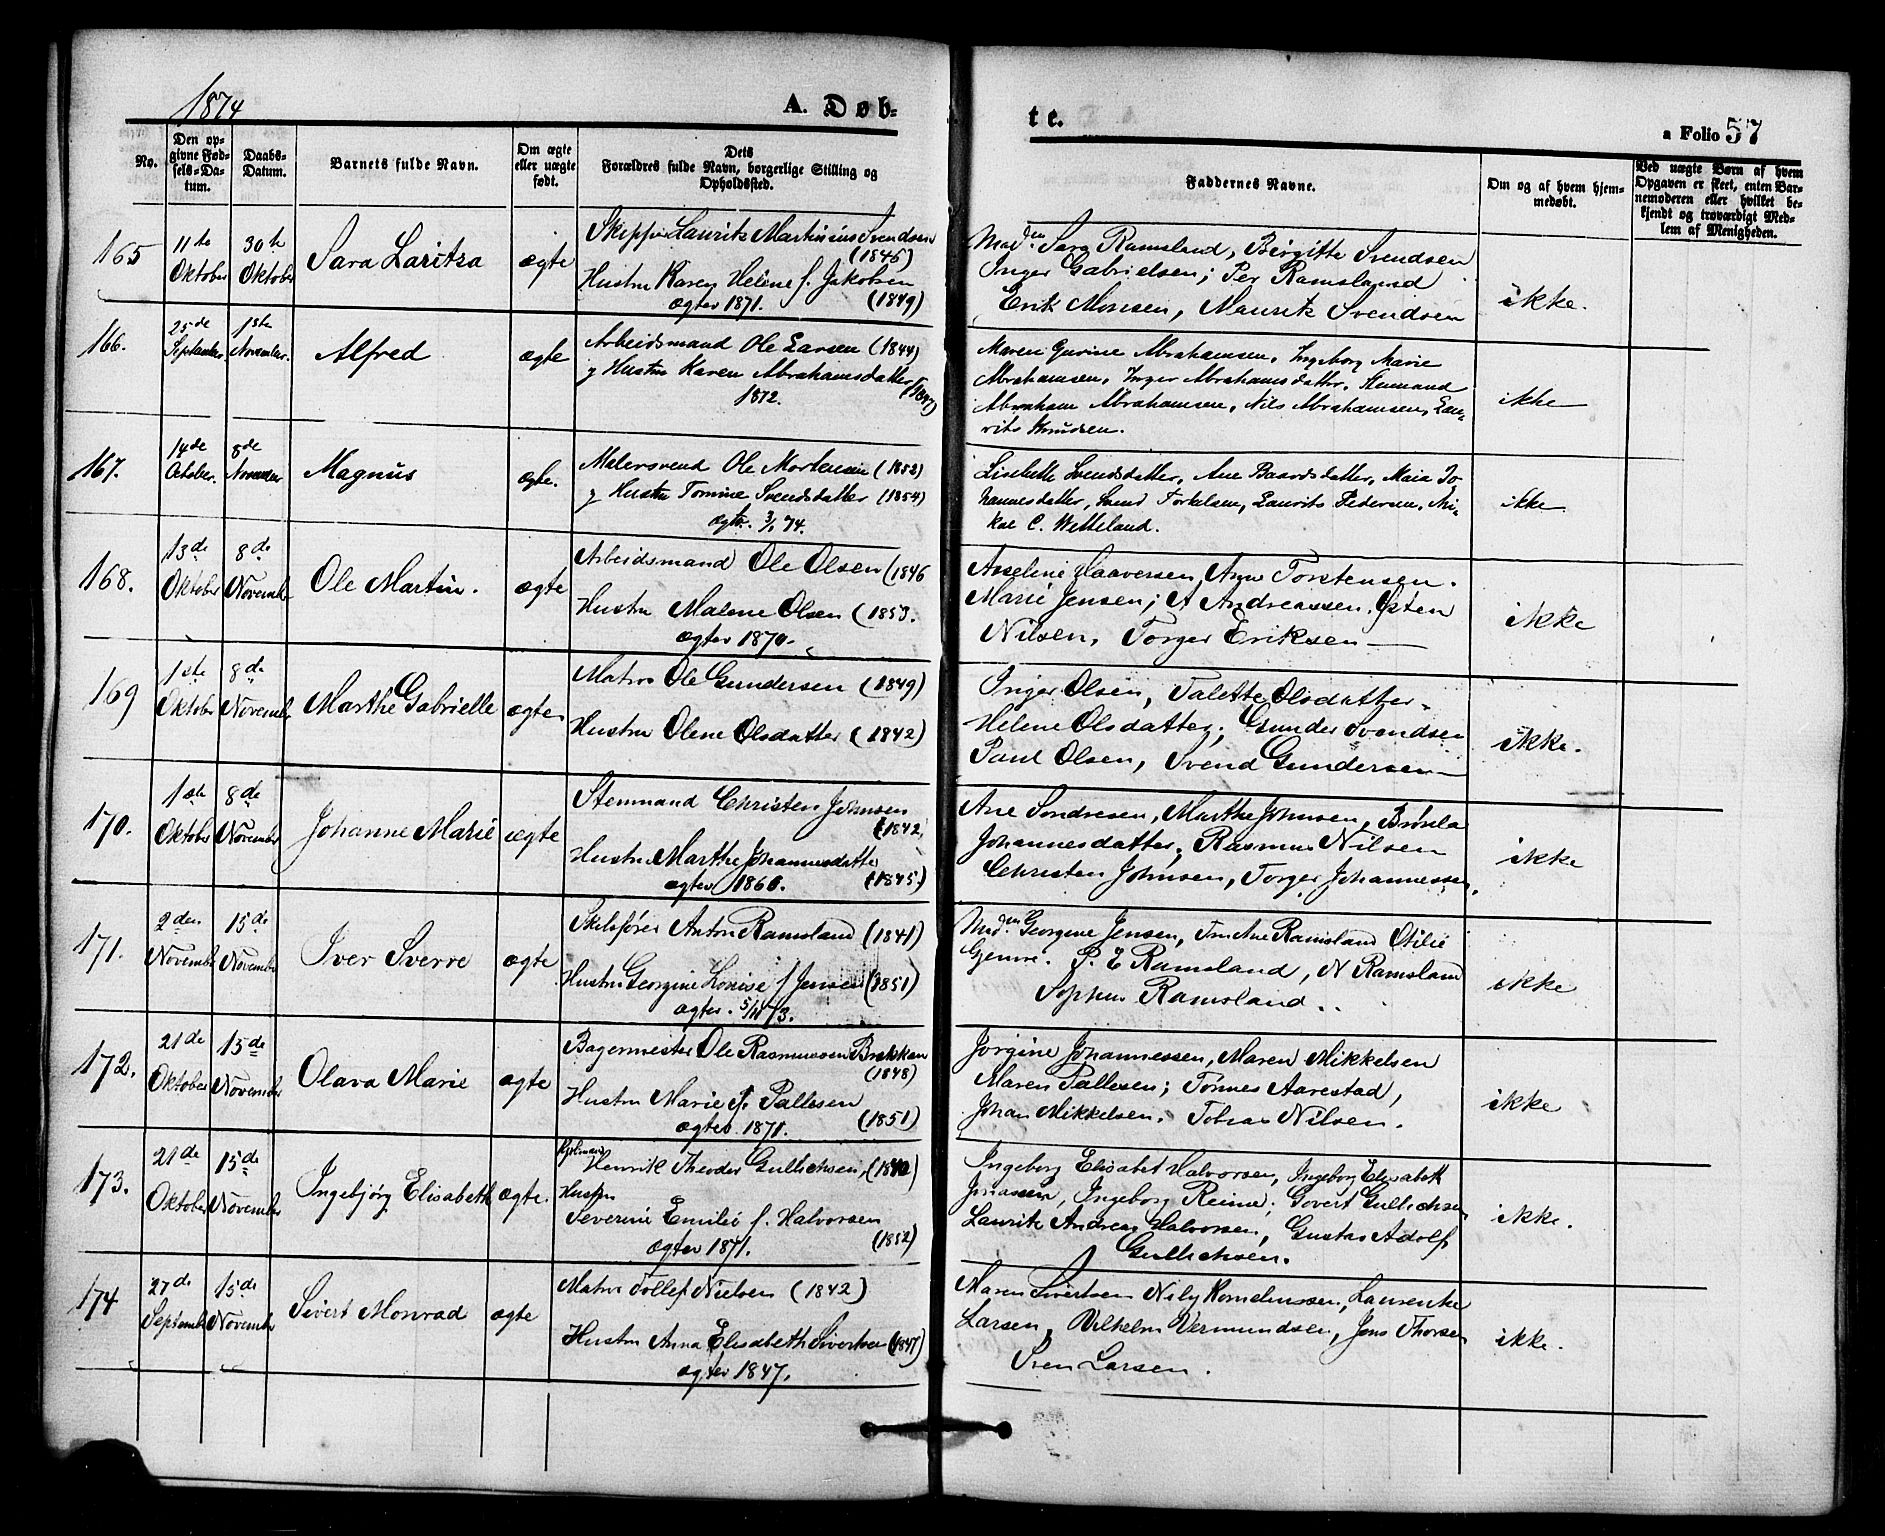 1874
A. Døb-
te.
a Folio 57
No.
Den op-
givne Fød-
sels-Da-
tum.
Daabs-
Datum.
Barnets fulde Navn.
Om ægte
eller uægte
født.
Dets
Forældres fulde Navn, borgerlige Stilling og
Opholdssted.
Faddernes Navne.
Om og af hvem hjem-
medøbt.
Ved uægte Børn af hvem
Opgaven er skeet, enten Bar-
nemoderen eller hvilket be-
kjendt og troværdigt Med-
lem af Menigheden.
165
11te
Oktober
30te
Oktober
Sara Laritza
ægte
Skipper Laurits Martinius Svendsen
(1846)
Hustru Karen Helene f. Jakobsen
ægtev 1871. (1849)
Mad den Sara Ramsland, Birgitte Svendsen
Inger Gabrielsen; Per Ramsland
Erik Monsen, Maurits Svendsen
ikke.
166.
25de
September
1ste
November.
Alfred
ægte
Arbeidsmand Ole Larsen (1844)
og Hustru Karen Abrahamsdatter
1872.
Maren Gurine Abrahamsen, Ingeborg Marie
Abrahamsen, Inger Abrahamsdatter,
Abraham Abrahamsen, Nils Abrahamsen, Lau-
rits Knudsen.
ikke
167.
14de
October.
8de
November
Magnus
ægte.
Malersvend Ole Mortensen (1852)
og Hustru Tomine Svendsdatter (1854)
ægtv. 3/1 74.
Lisebette Svendsdatter, Ane Baardsdatter, Maia Jo-
hannesdatter, Svend Torkelsen, Laurits Pedersen, Mi-
kal C. Wetteland.
ikke
168.
13de
Oktober
8de
November
Ole Martin.
ægte
Arbeidsmand Ole Olsen (1846
Hustru Malene Olsen (1853.
ægtev 1870.
Asseline Haaversen, Anne Torstensen.
Marie Jensen; A Andreassen, Østen
Nilsen, Torger Eriksen
ikke
169
1ste
Oktober
8de
November
Marthe Gabrielle
ægte
Matros Ole Gundersen (1849)
Hustru Olene Olsdatter (1842)
Inger Olsen, Talette Olsdatter,
Helene Olsdatter; Gunder Svendsen
Paul Olsen, Svend Gundersen
ikke.
170.
1ste
Oktober
8de
November
Johanne Marie
ægte
Stenmand Christen Johnsen
(1842)
Hustru Marthe Johannesdatte
ægtev 1860. (1845)
Ane Sondresen, Marthe Johnsen, Brønla
Johannesdatter, Rasmus Nilsen
Christen Johnsen, Torger Johannessen.
ikke
171.
2den
November
15de
November
Iver Sverre
ægte
Skibsfører Anton Ramsland (1841)
Hustru Georgine Louise f Jensen (1851)
ægtev. 73.
Mad den Georgine Jensen, Ane Ramsland Otilie
P. E Ramsland, N Ramsland
Sophus Ramsland.
ikke
172.
21de
Oktober
15de
November
Olava Marie
ægte
Bagermester Ole Rasmussen
(1848)
Hustru Marie f. Pallesen
ægtev. 1871. (1851)
Jørgine Johannessen, Maren Mikkelsen
Maren Pallesen; Tønnes Aarestad,
Johan Mikkelsen, Tobias Nilsen.
ikke
173.
21de
Oktober
15de
November
Ingebjørg Elisabeth
ægte.
Kjøbmand
Henrik Theodor Gullichsen,
Hustru
Severine Emilie f. Halvorsen
ægtev 1871. (1852)
Ingeborg Elisabet Halvorsen, Ingeborg Elisabet
Jonassen, Ingeborg Reime; Govert Gullichsen
Laurits Andreas Halvorsen, Gustav Adolf
Gullichsen.
ikke.
174
27de
September
15de
November
Sivert Monrad
ægte
Matros Tollef Nielsen (1842)
Hustru Anna Elisabeth Sivertsen (1847)
ægtev 1847.
Maren Sivertsen Laurentze
Larsen, Vilhelm Vermundsen, Jens Thorsen
Sven Larsen.
ikke.